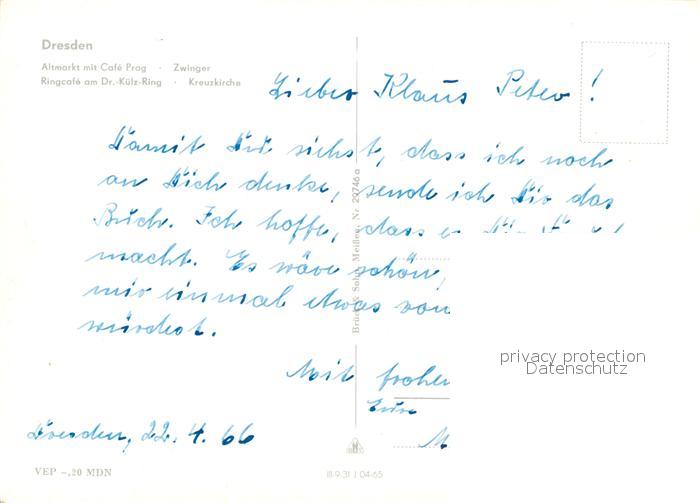 Dresden
Altmarkt mit Café Prag · Zwinger
Ringcafé am Dr.-Külz-Ring · Kreuzkirche
Lieber Klaus Peter!
Damit Du siehst, dass ich noch
an Dich denke, sende ich Dir das
Buch. Ich hoffe, dass
macht. Es wäre schön,
mir einmal etwas von
würdest.
Mit frohen
Eure
M
Dresden, 22. 4. 66
Brück & Sohn, Meißen, Nr. 29746a
privacy protection
Datenschutz
VEP -,20 MDN
III-9-31 J 04-65